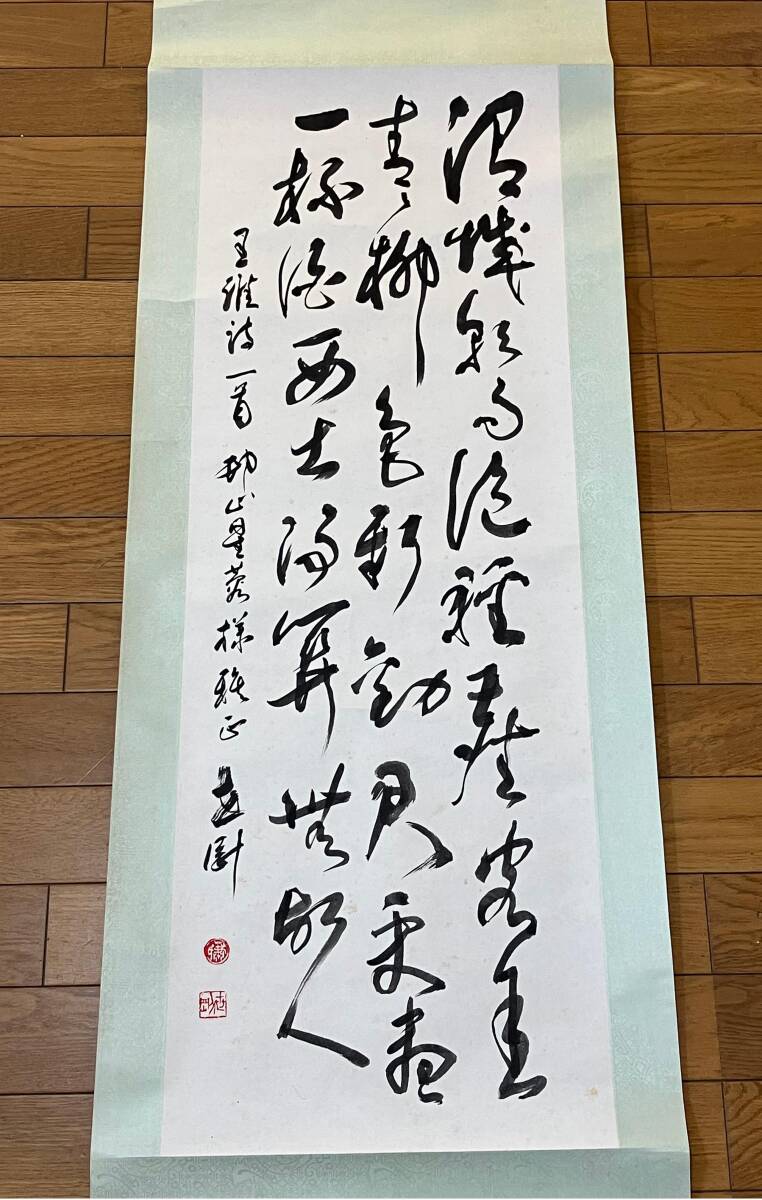 渭城朝雨浥輕塵客舍
青々柳色新勸君更盡
一杯酒西出陽關無故人
王維詩一首 邨山星蓉様雅正